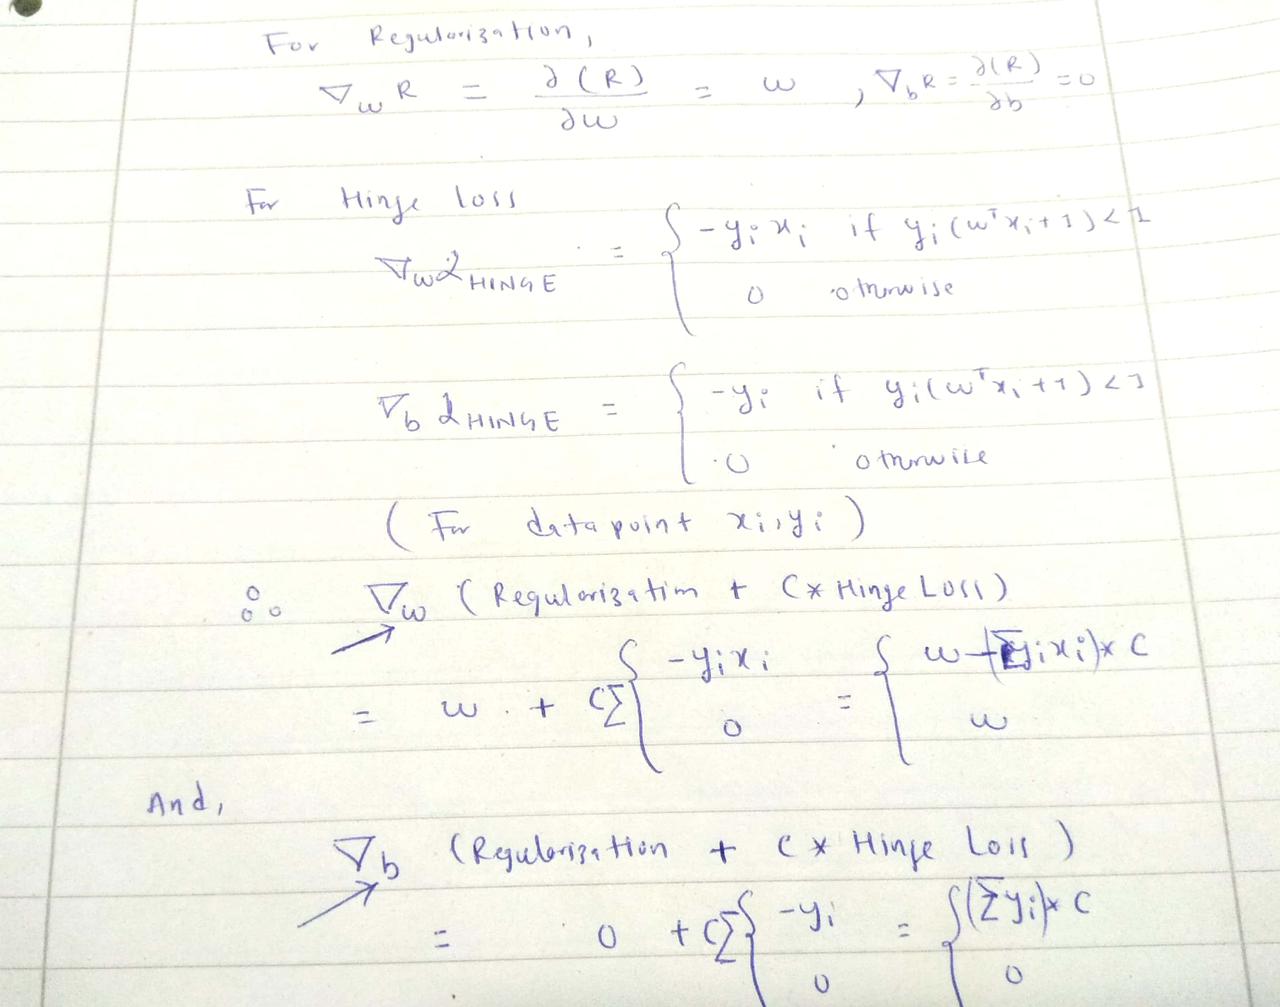 For Regularization,
∇_w R = ∂(R)/∂w = w , ∇_b R = ∂(R)/∂b = 0
For Hinge loss
∇_w L_HINGE = { -y_i x_i if y_i(w^T x_i + 1) < 1
0 otherwise
∇_b L_HINGE = { -y_i if y_i(w^T x_i + 1) < 1
0 otherwise
( For data point x_i, y_i )
∴ ∇_w ( Regularization + C * Hinge Loss )
= w + CΣ { -y_i x_i = { w - (Σ y_i x_i) * C
0 w
And,
∇_b ( Regularization + C * Hinge Loss )
= 0 + CΣ { -y_i = { (Σ y_i) * C
0 0